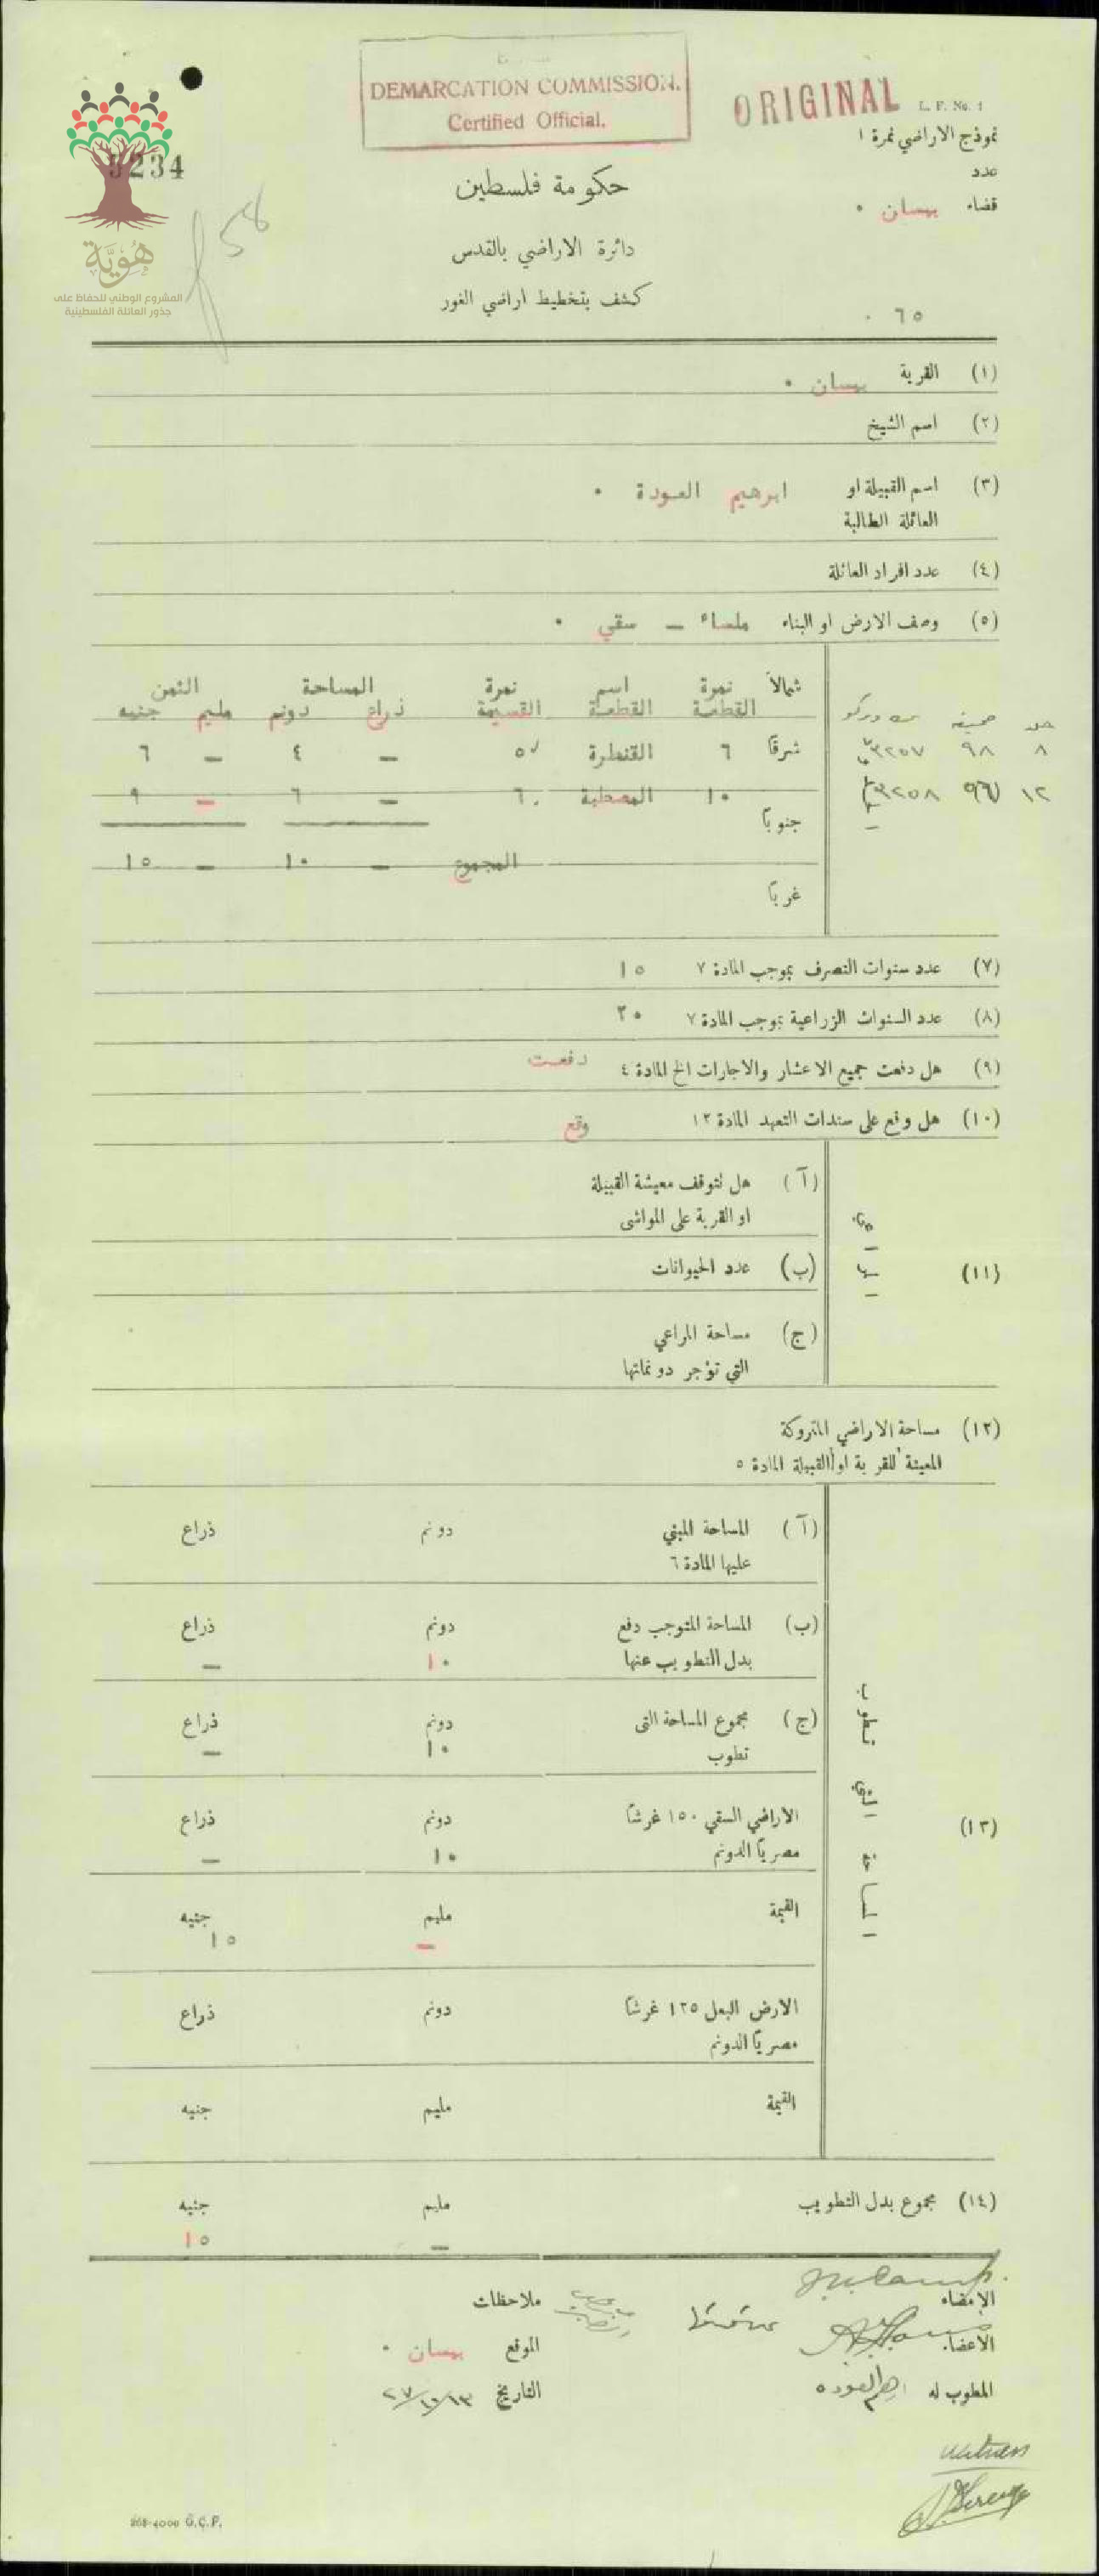 DEMARCATION COMMISSION.
Certified Official.
ORIGINAL
L. F. No. 1
نموذج الاراضي نمرة ١
3234
عدد
حكومة فلسطين
قضاء بيسان ٠
58
دائرة الاراضي بالقدس
هُوِيَّة
المشروع الوطني للحفاظ على
جذور العائلة الفلسطينية
كشف بتخطيط اراضي الغور
٦٥ ٠
(١) القرية بيسان ٠
(٢) اسم الشيخ
(٣) اسم القبيلة او ابرهيم العودة ٠
العائلة الطالبة
(٤) عدد افراد العائلة
(٥) وصف الارض او البناء ملساء – سقي ٠
شمالاً نمرة اسم نمرة المساحة الثمن
القطعة القطعة القسيمة ذراع دونم مليم جنيه
جلد صحيفة
شرقاً ٦ القنطرة ٥٧ – ٤ – ٦
٨ ٩٨ ٣٢٥٧
١٠ المصطبة ٦٠ – ٦ – ٩
١٢ ٣٢٥٨
جنوباً
المجموع – ١٠ – ١٥
غرباً
(٧) عدد سنوات التصرف بموجب المادة ٧ ١٥
(٨) عدد السنوات الزراعية بموجب المادة ٧ ٣٠
(٩) هل دفعت جميع الاعشار والاجارات الخ المادة ٤ دفعت
(١٠) هل وقع على سندات التعهد المادة ١٢ وقع
(١١) المراعي
(آ) هل تتوقف معيشة القبيلة
او القرية على المواشي
(ب) عدد الحيوانات
(ج) مساحة المراعي
التي تؤجر دونماتها
(١٢) مساحة الاراضي المتروكة
المعينة للقرية او القبيلة المادة ٥
(١٣) المساحة التي تطوب
(آ) المساحة المبني دونم ذراع
عليها المادة ٦
(ب) المساحة المتوجب دفع دونم ذراع
بدل التطويب عنها ١٠ –
(ج) مجموع المساحة التي دونم ذراع
تطوب ١٠ –
الاراضي السقي ١٥٠ غرشاً دونم ذراع
مصرياً الدونم ١٠ –
القيمة مليم جنيه
– ١٥
الارض البعل ١٢٥ غرشاً دونم ذراع
مصرياً الدونم
القيمة مليم جنيه
(١٤) مجموع بدل التطويب مليم جنيه
– ١٥
الإمضاء
ملاحظات
الاعضاء
الموقع بيسان ٠
المطوب له ابرهيم العوده
التاريخ
witness
268-4000 G.C.P.